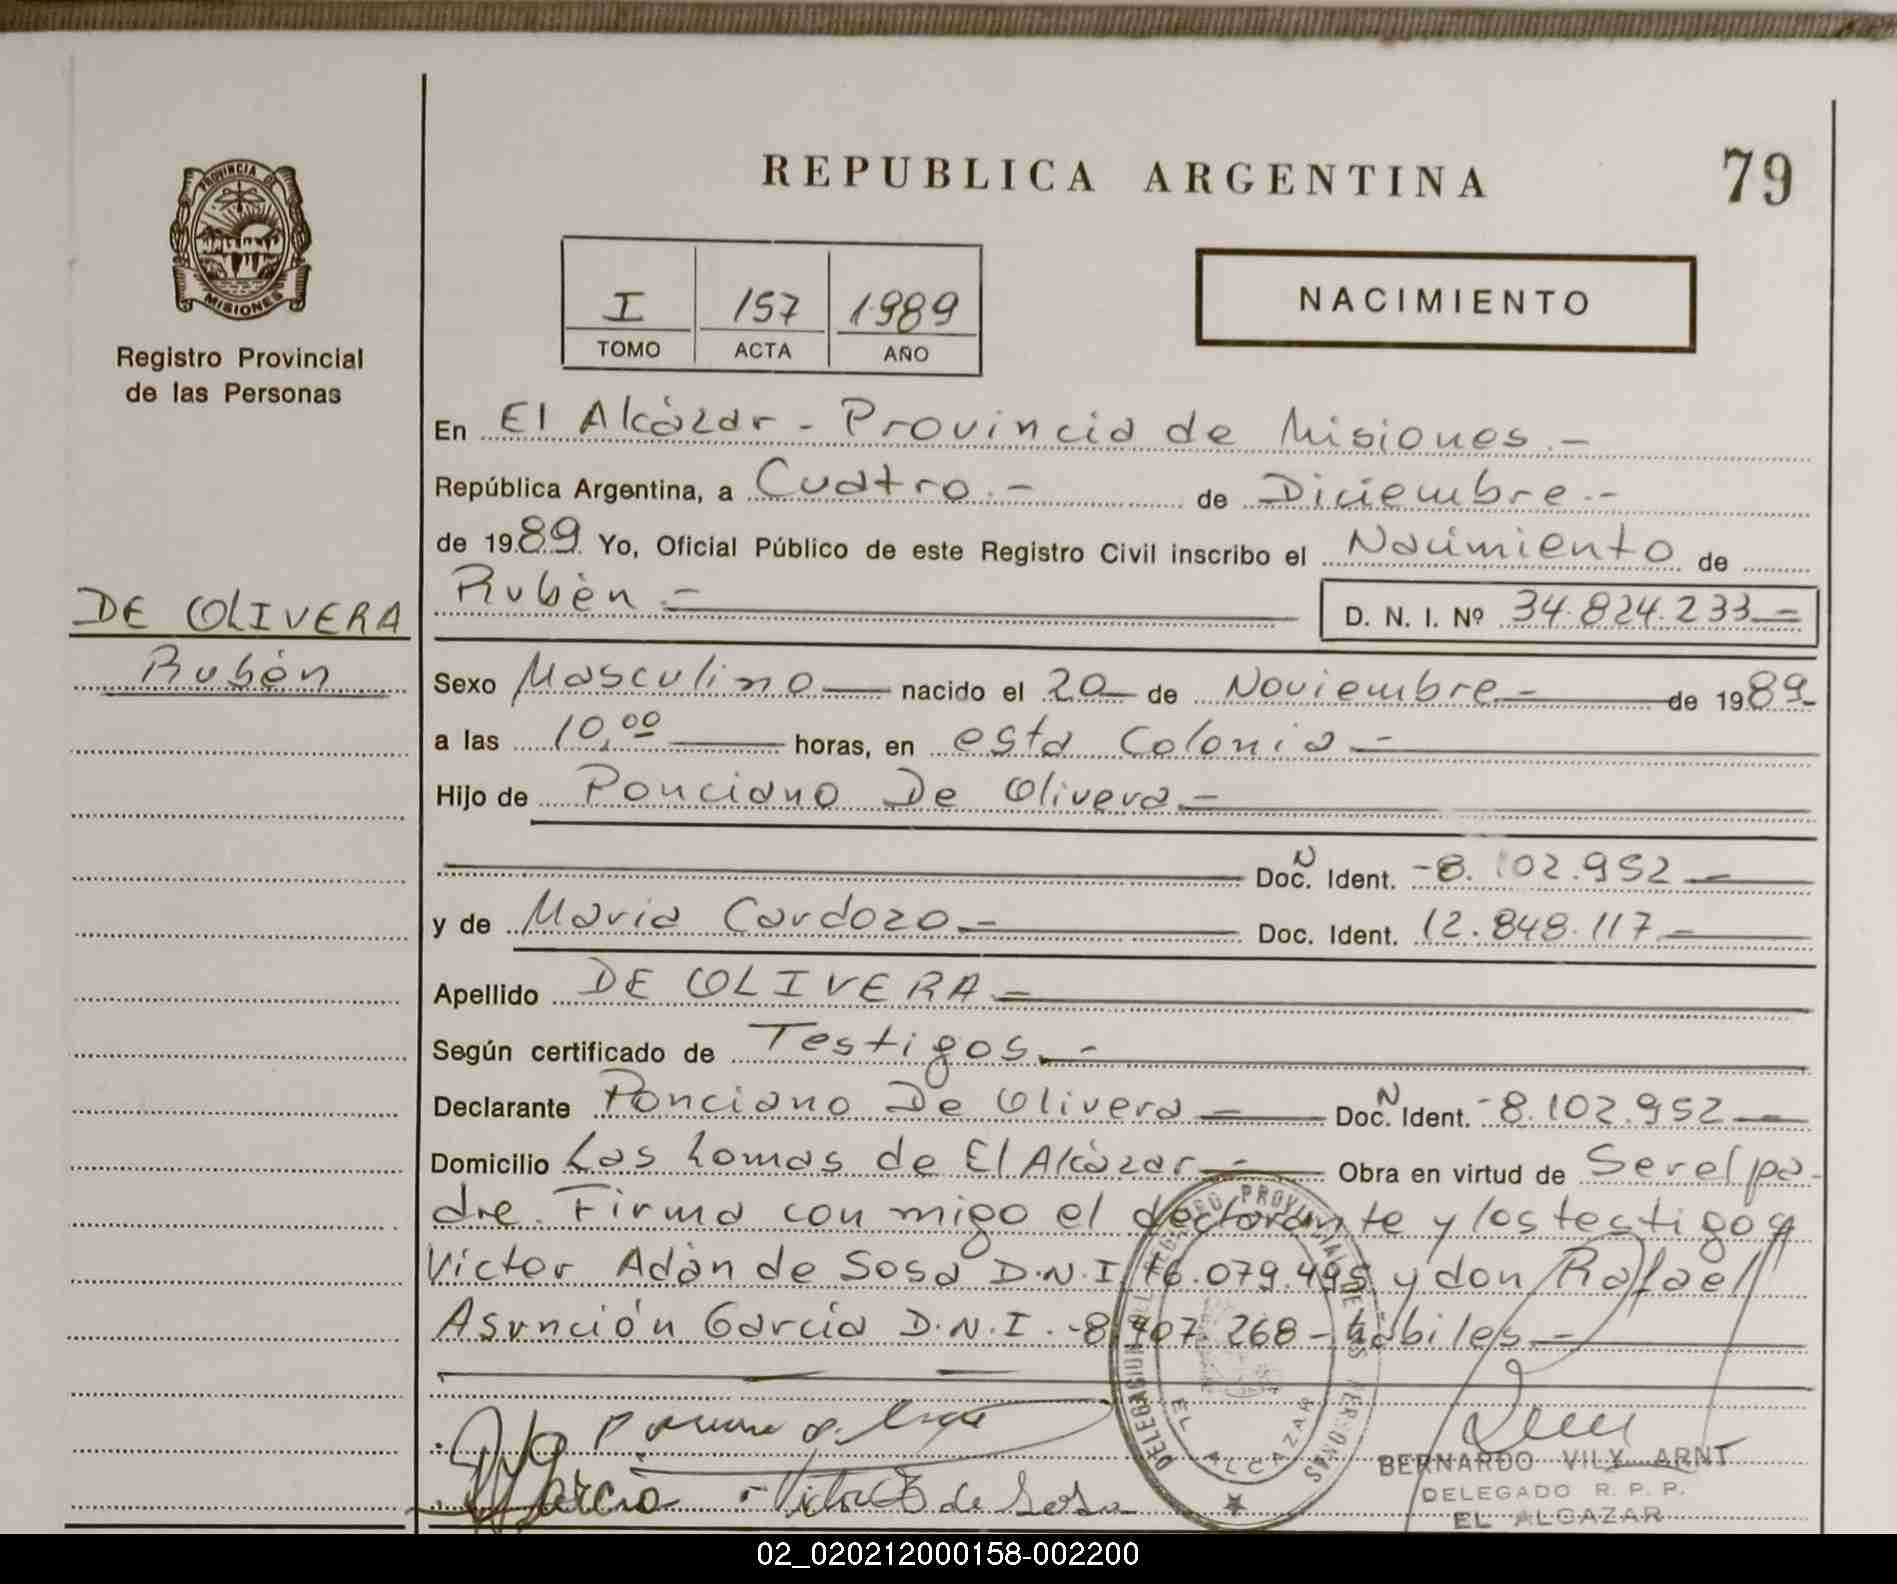 PROVINCIA DE
MISIONES
Registro Provincial
de las Personas
DE OLIVERA
Rubèn
REPUBLICA ARGENTINA
79
I 157 1989
TOMO ACTA AÑO
NACIMIENTO
En El Alcàzar - Provincia de Misiones.-
República Argentina, a Cuatro.- de Diciembre.-
de 1989. Yo, Oficial Público de este Registro Civil inscribo el Nacimiento de
Rubèn.- D. N. I. Nº 34.824.233=
Sexo Masculino — nacido el 20— de Noviembre.- de 1989-
a las 10,00 — horas, en esta Colonia.-
Hijo de Ponciano De Olivera.-
Doc. N Ident. -8.102.952.-
y de Maria Cardozo.- Doc. Ident. 12.848.117.-
Apellido DE OLIVERA.-
Según certificado de Testigos.-
Declarante Ponciano De Olivera.- Doc. N Ident. -8.102.952.-
Domicilio Las Lomas de El Alcàzar.- Obra en virtud de Ser el pa-
dre. Firma con migo el declarante y los testigos
Victor Adàn de Sosa D.N.I. 16.079.495 y don Rafael
Asunciòn Garcia D.N.I. -8.407.268- hàbiles.-
DELEGACION DEL REGISTRO PROVINCIAL DE LAS PERSONAS
EL ALCAZAR
Garcia
de Sosa
BERNARDO VILY ARNT
DELEGADO R. P. P.
EL ALCAZAR
02_020212000158-002200